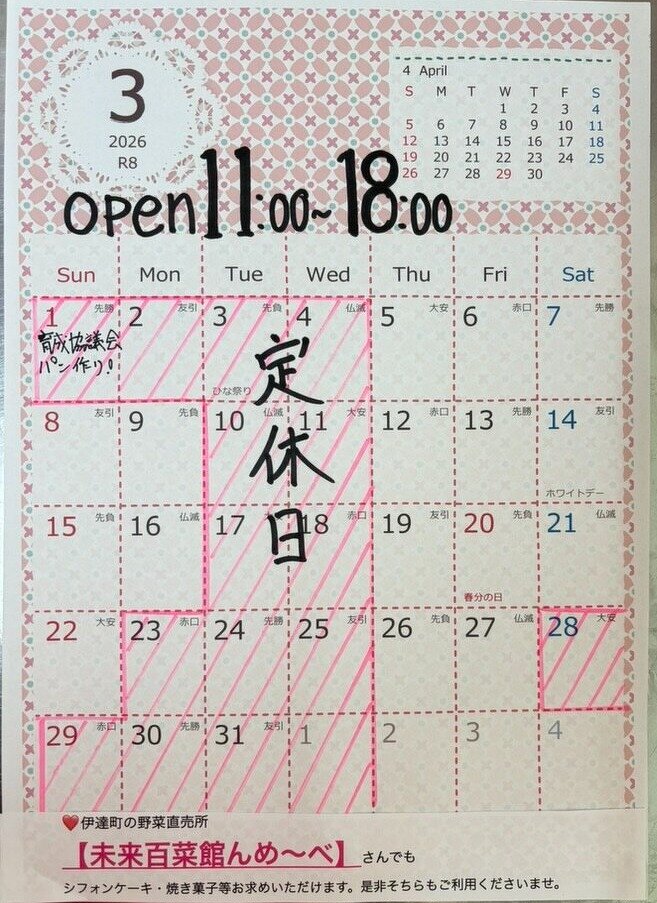 3
2026
R8
4 April
S M T W T F S
1 2 3 4
5 6 7 8 9 10 11
12 13 14 15 16 17 18
19 20 21 22 23 24 25
26 27 28 29 30
open 11:00~18:00
Sun Mon Tue Wed Thu Fri Sat
1 先勝 2 友引 3 先負 4 仏滅 5 大安 6 赤口 7 先勝
育成協議会
パン作り!
ひな祭り
定休日
8 友引 9 先負 10 仏滅 11 大安 12 赤口 13 先勝 14 友引
ホワイトデー
15 先負 16 仏滅 17 18 赤口 19 友引 20 先負 21 仏滅
春分の日
22 大安 23 赤口 24 先勝 25 友引 26 先負 27 仏滅 28 大安
29 赤口 30 先勝 31 友引 1 2 3 4
❤伊達町の野菜直売所
【未来百菜館んめ〜べ】さんでも
シフォンケーキ・焼き菓子等お求めいただけます。是非そちらもご利用くださいませ。